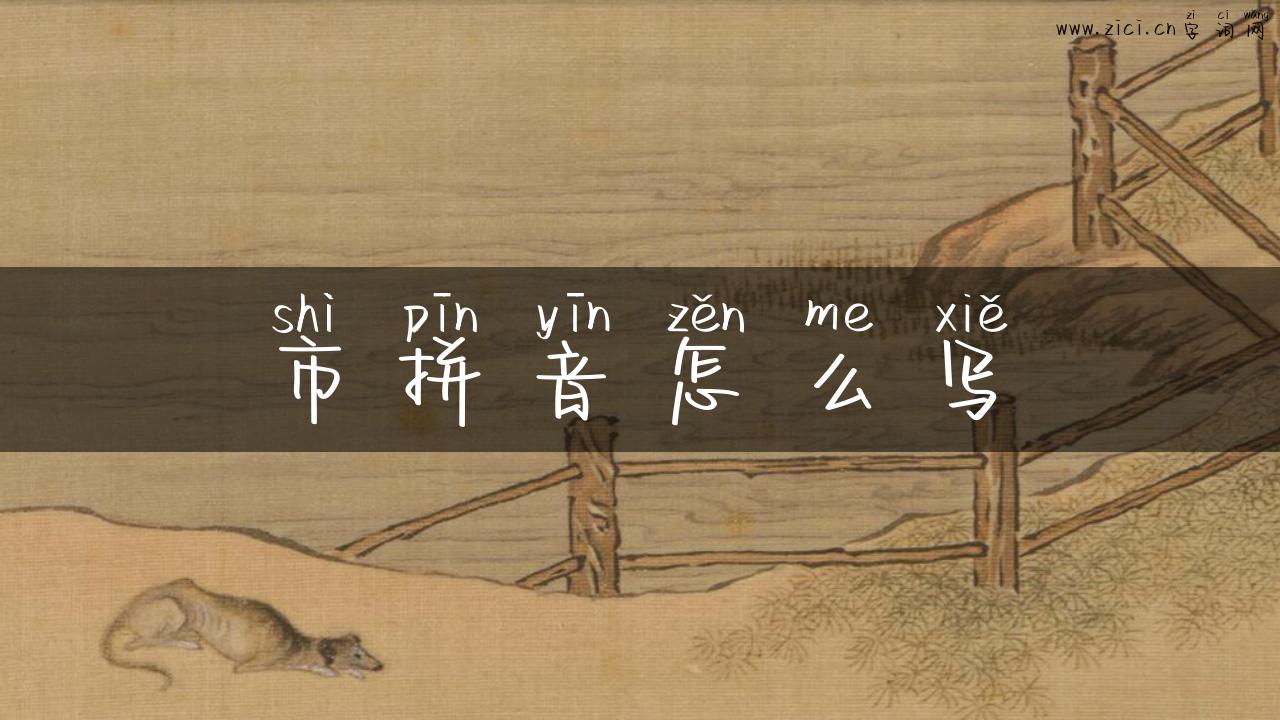 zì cí wǎng
www.zici.cn 字词网
shì pīn yīn zěn me xiě
市拼音怎么写